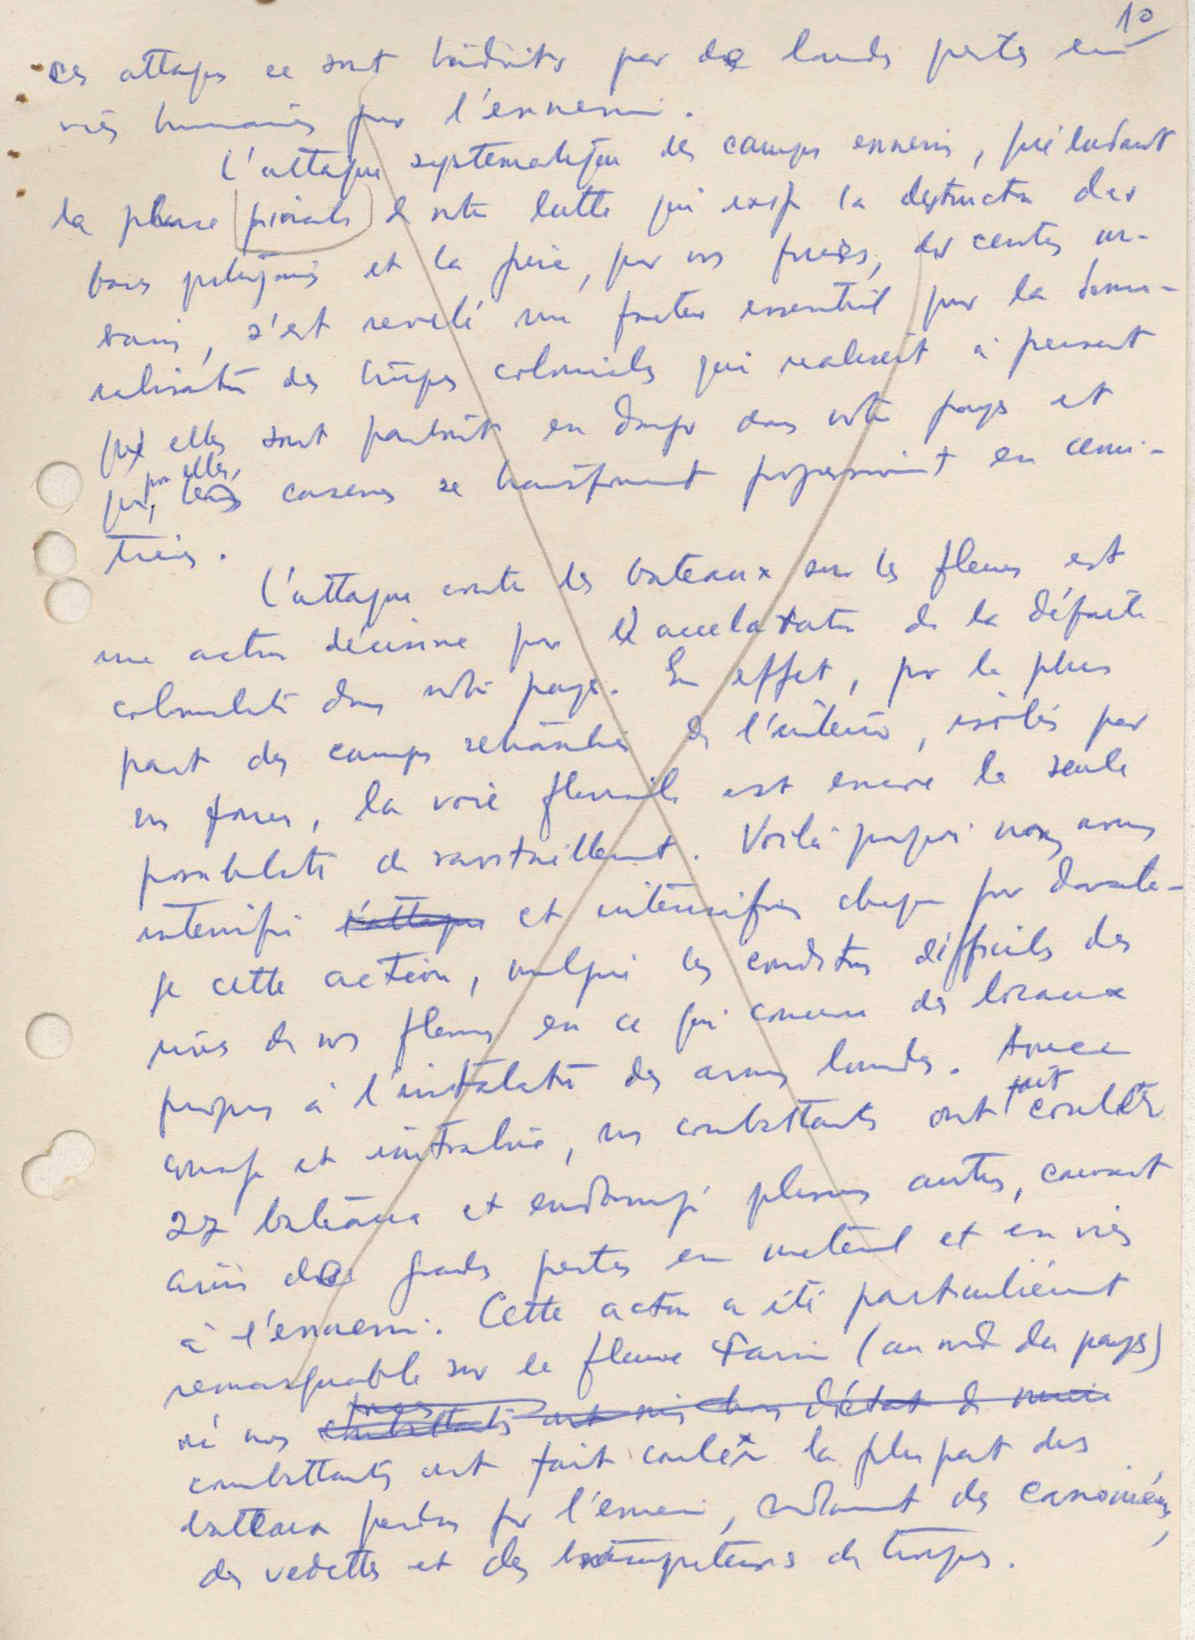 10
ces attaques se sont traduites par de lourdes pertes en
vies humaines pour l'ennemi.
L'attaque systématique des camps ennemis, préludant
la phase de notre lutte qui exige la destruction des
bases et la prise, par nos forces, des centres ur-
bains, s'est révélé un facteur essentiel pour la démo-
ralisation des troupes coloniales qui réalisent à présent
qu'elles sont partout en danger dans notre pays et
que, pour elles, les casernes se transforment progressivement en cime-
tières.
L'attaque contre les bateaux sur les fleuves est
une action décisive pour l'accélération de la défaite
colonialiste dans notre pays. En effet, pour la plus
part des camps retranchés de l'intérieur, isolés par
nos forces, la voie fluviale est encore la seule
possibilité de ravitaillement. Voilà pourquoi nous avons
intensifié l'attaque et intensifions chaque jour davanta-
ge cette action, malgré les conditions difficiles des
rives de nos fleuves en ce qui concerne des locaux
propres à l'installation des armes lourdes. Avec
courage et, nos combattants ont fait couler
27 bateaux et endommagé plusieurs autres, causant
ainsi de grandes pertes en matériel et en vies
à l'ennemi. Cette action a été particulièrement
remarquable sur le fleuve Farim (au nord du pays)
où nos forces combattants ont mis hors d'état de nuire
combattants ont fait couler la plus part des
bateaux perdus par l'ennemi, des canonnières,
des vedettes et des transporteurs de troupes.